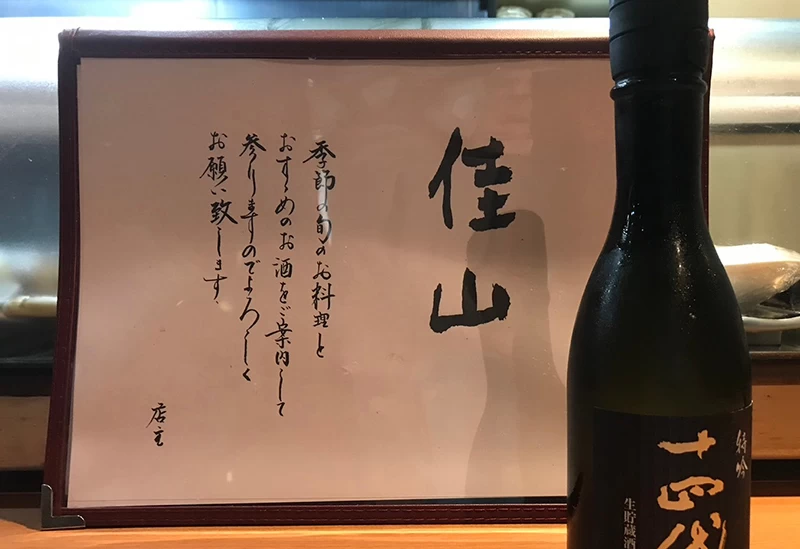 佳山
季節の旬のお料理と
おすゝめのお酒をご案内して
参りますのでよろしく
お願い致します.
店主
特吟
十四代
生貯蔵酒